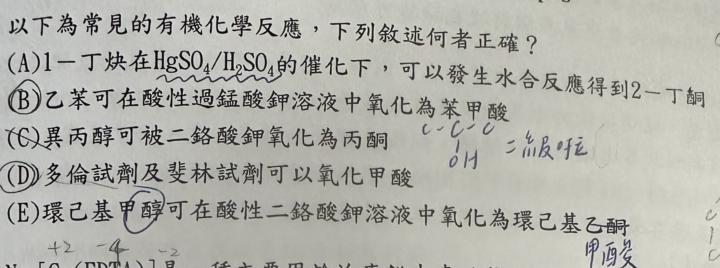 以下為常見的有機化學反應，下列敘述何者正確？
(A)1－丁炔在HgSO₄/H₂SO₄的催化下，可以發生水合反應得到2－丁酮
(B)乙苯可在酸性過錳酸鉀溶液中氧化為苯甲酸
(C)異丙醇可被二鉻酸鉀氧化為丙酮
C-C-C
OH
二級啦
(D)多倫試劑及斐林試劑可以氧化甲酸
(E)環己基甲醇可在酸性二鉻酸鉀溶液中氧化為環己基乙酮
甲酸
+2 -4 -2